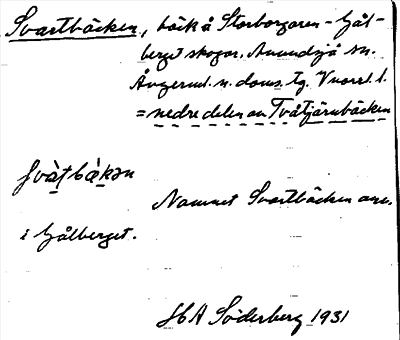 Svartbäcken, bäck å Storborgaren - Gål-
berget skogar, Anundsjö sn.
Ångerml. n. doms. tg. Vnorrl. l.
= nedre delen av Tvåtjärnbäcken
svàṭbàkən
Namnet Svartbäcken anv.
i Gålberget.
HA Söderberg 1931